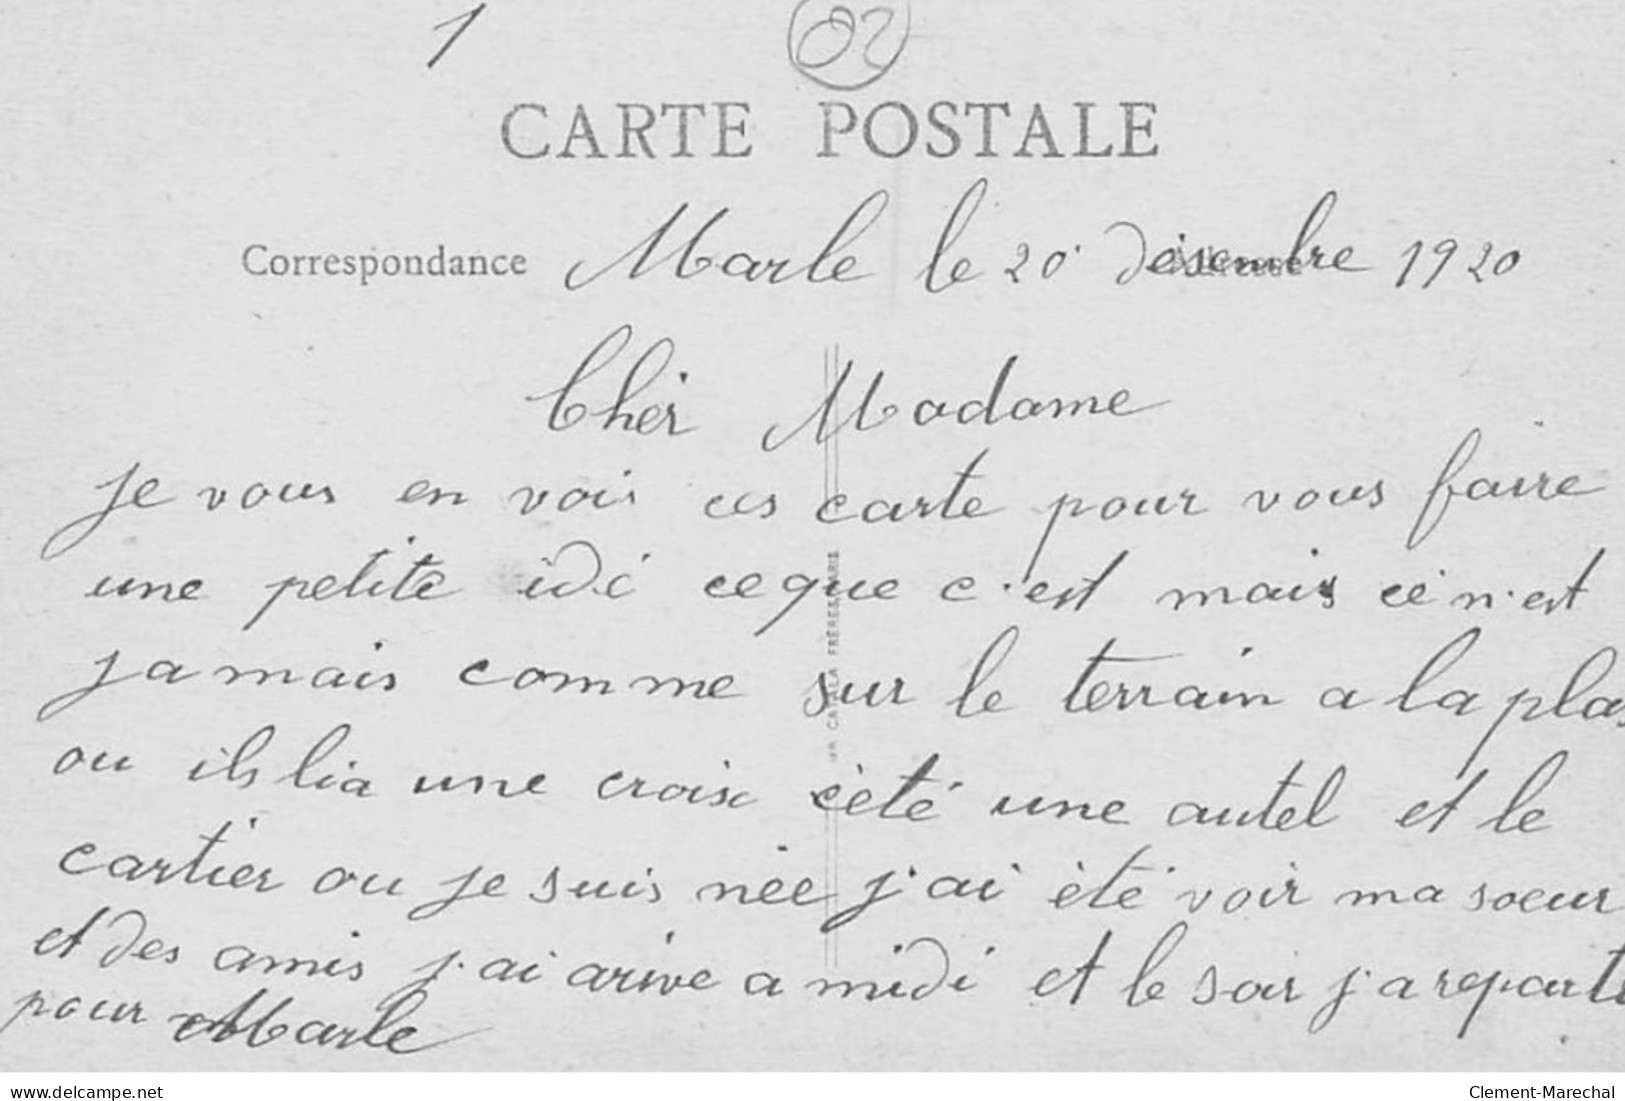 1
02
CARTE POSTALE
Correspondance Marle le 20 désembre 1920
Cher Madame
je vous en vois ces carte pour vous faire
une petite idé ce que c'est mais cé n'est
jamais comme sur le terrain a la plas
ou ils lia une croix cèté une autel et le
cartier ou je suis née j'ai èté voir ma soeur
et des amis j'ai arive a midi et le soir j'a reparte
pour Marle
CATALA FRERES PARIS
delcampe.net
Clement-Marechal